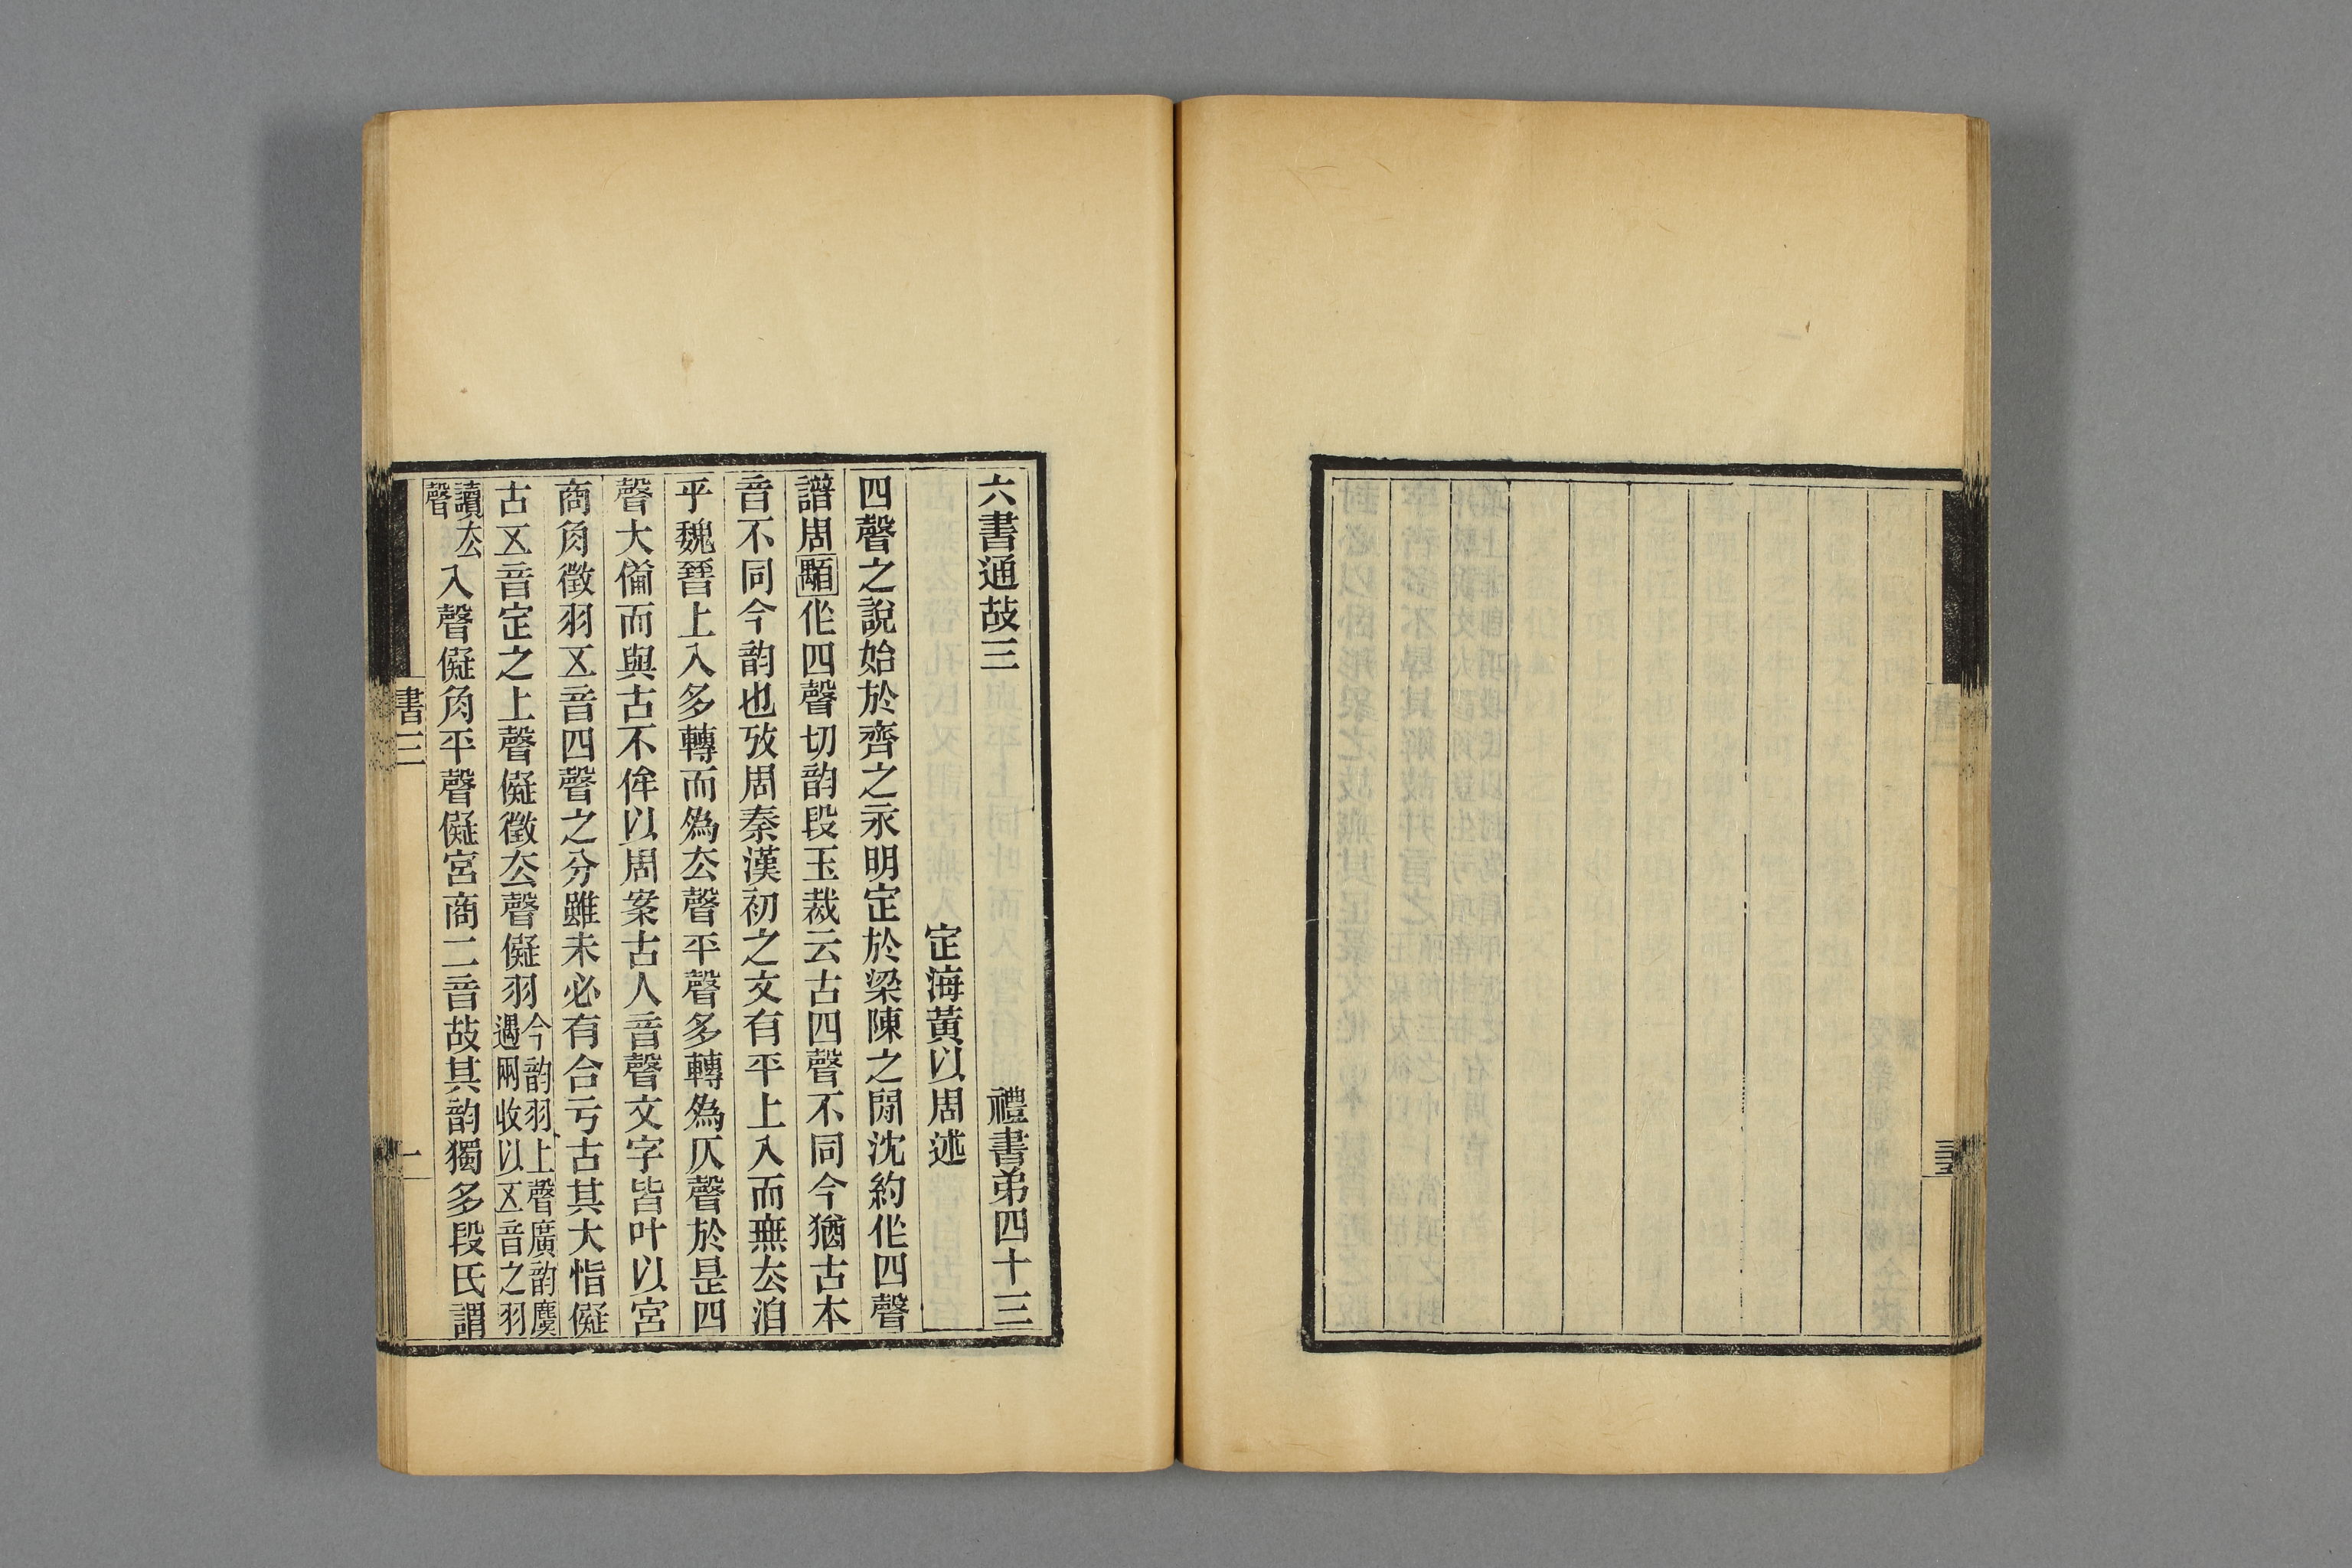 六書通故三　禮書弟四十三
定海黃以周述
四聲之說始於齊之永明定於梁陳之閒沈約作四聲
譜周顒作四聲切韵段玉裁云古四聲不同今猶古本
音不同今韵也攷周秦漢初之文有平上入而無厺洎
乎魏晉上入多轉而爲厺聲平聲多轉爲仄聲於是四
聲大僃而與古不侔以周案古人音聲文字皆叶以宮
商角徵羽㐅音四聲之分雖未必有合亏古其大恉儗
古㐅音定之上聲儗徵厺聲儗羽今韵羽上聲廣韵麌
遇兩收以㐅音之羽
讀厺
聲
入聲儗角平聲儗宮商二音故其韵獨多段氏謂
書三
一